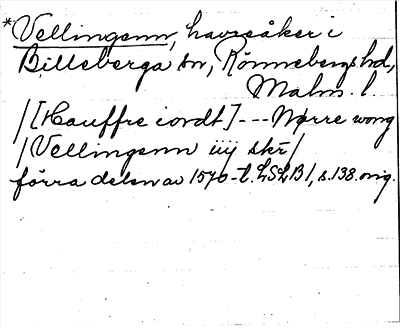 *Vellingenn, havresåker i
Billeberga sn, Rönnebergs hd,
Malm. l.
/[Hauffre iordt] --- Nørre wong
/Vellingenn iiij skr/
förra delen av 1570-t. LSLB 1, s. 138. orig.